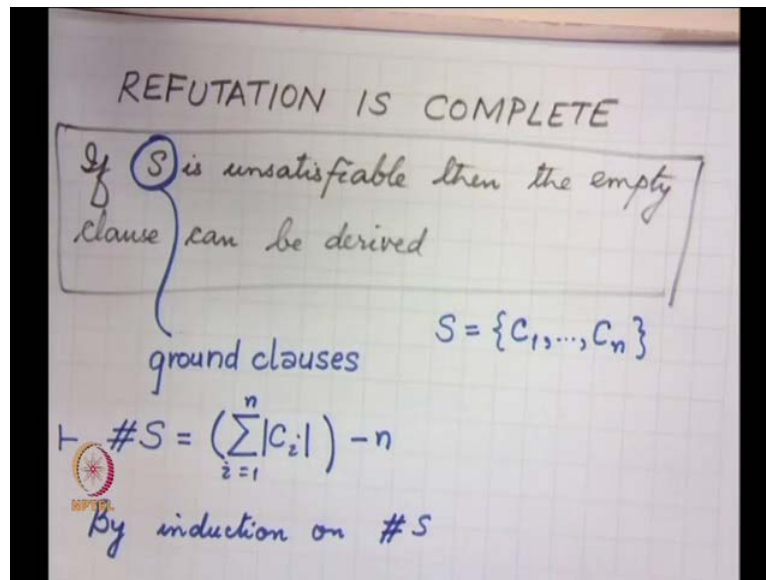 REFUTATION IS COMPLETE
If S is unsatisfiable then the empty
clause can be derived
S = {C₁,...,Cₙ}
ground clauses
⊢ #S = (∑ⁿᵢ₌₁|Cᵢ|) - n
NPTEL
By induction on #S